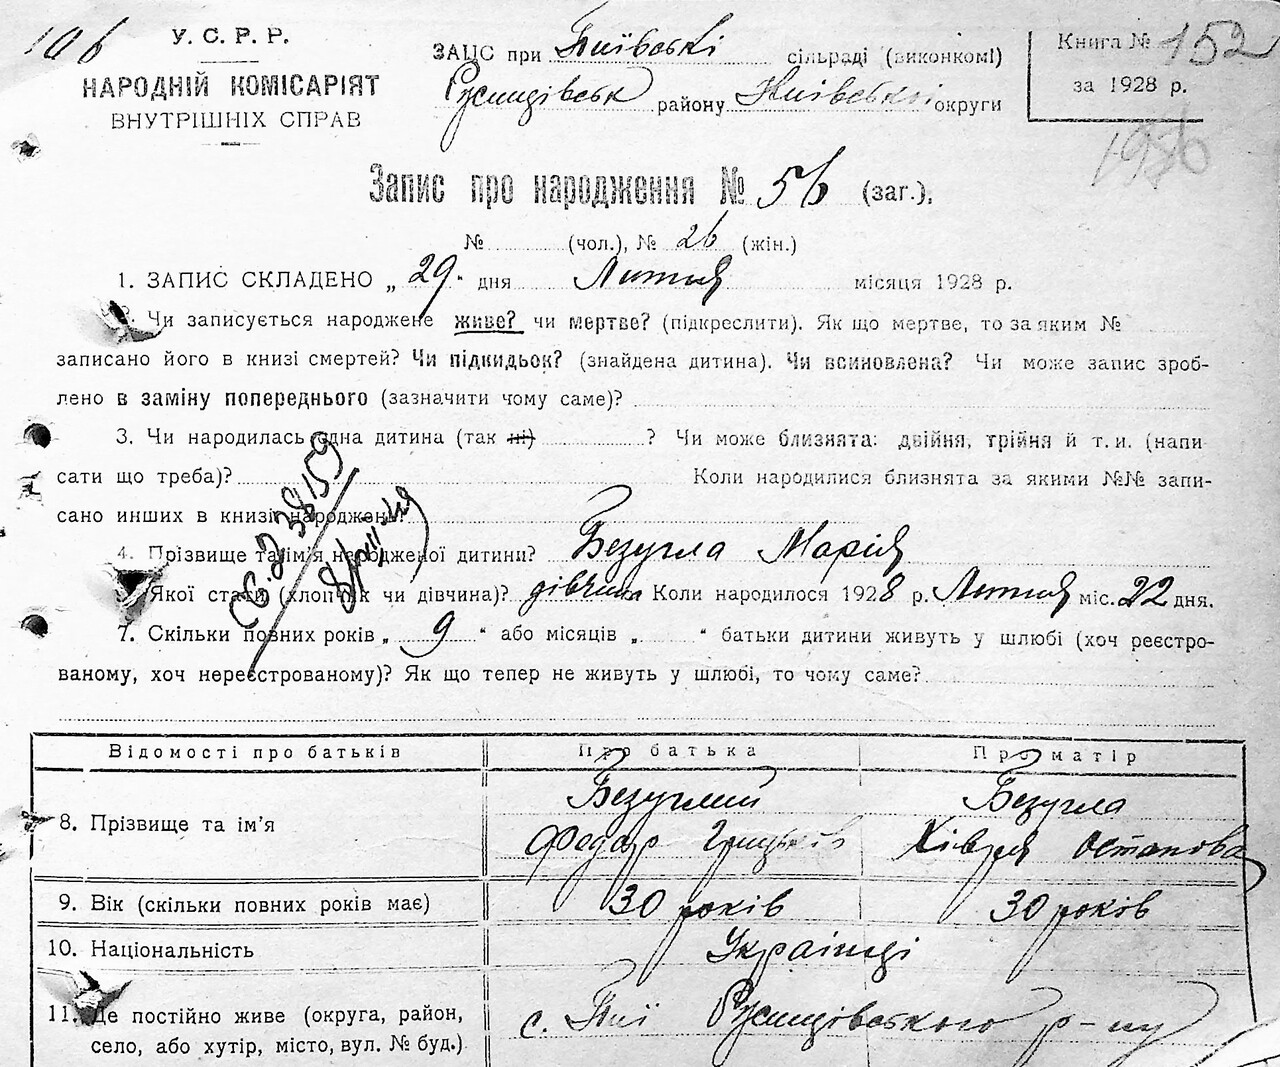 106
У. С. Р. Р.
НАРОДНІЙ КОМІСАРІЯТ
ВНУТРІШНІХ СПРАВ
ЗАЦС при Пиївські сільраді (виконкомі)
Ржищівськ району Київської округи
Книга № 152
за 1928 р.
196
Запис про народження № 56 (заг.),
№ (чол.), № 26 (жін.)
1. ЗАПИС СКЛАДЕНО „ 29 " дня Лютня місяця 1928 р.
2. Чи записується народжене живе? чи мертве? (підкреслити). Як що мертве, то за яким №
записано його в книзі смертей? Чи підкидьок? (знайдена дитина). Чи всиновлена? Чи може запис зроб-
лено в заміну попереднього (зазначити чому саме)?
3. Чи народилась одна дитина (так ні) ? Чи може близнята: двійня, трійня й т. и. (напи
сати що треба)? Коли народилися близнята за якими №№ запи-
сано инших в книзі народжень?
4. Прізвище та ім'я народженої дитини? Безугла Марія
Якої стати (хлопчик чи дівчина)? дівчина Коли народилося 1928 р. Лютня міс. 22 дня.
7. Скільки повних років „ 9 " або місяців „ " батьки дитини живуть у шлюбі (хоч реєстро-
ваному, хоч нереєстрованому)? Як що тепер не живуть у шлюбі, то чому саме?
38159
Відомості про батьків Про батька Про матір
8. Прізвище та ім'я Безуглий Безугла
Федор Грицьків Хівря Остапова
9. Вік (скільки повних років має) 30 років 30 років
10. Національність Українці
11. Де постійно живе (округа, район, с. Пиї Ржищівського р-ну
село, або хутір, місто, вул. № буд.)